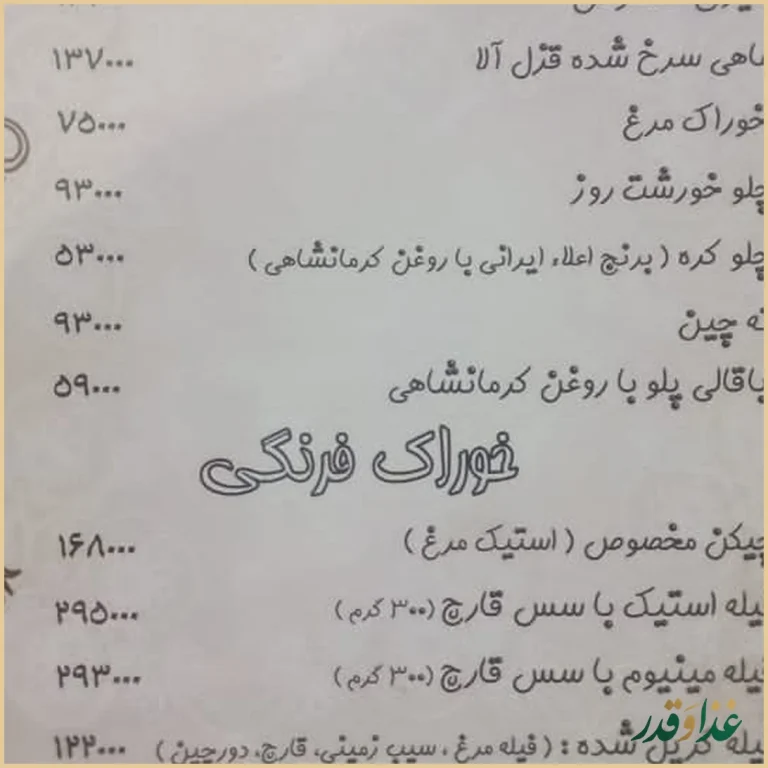 ماهی سرخ شده قزل آلا ۱۳۷۰۰۰
خوراک مرغ ۷۵۰۰۰
چلو خورشت روز ۹۳۰۰۰
چلو کره ( برنج اعلاء ایرانی با روغن کرمانشاهی ) ۵۳۰۰۰
ته چین ۹۳۰۰۰
باقالی پلو با روغن کرمانشاهی ۵۹۰۰۰
خوراک فرنگی
چیکن مخصوص ( استیک مرغ ) ۱۶۸۰۰۰
فیله استیک با سس قارچ (۳۰۰ گرم ) ۲۹۵۰۰۰
فیله مینیوم با سس قارچ (۳۰۰ گرم ) ۲۹۳۰۰۰
فیله گریل شده : ( فیله مرغ ، سیب زمینی، قارچ، دورچین ) ۱۲۲۰۰۰
غذا و قدر